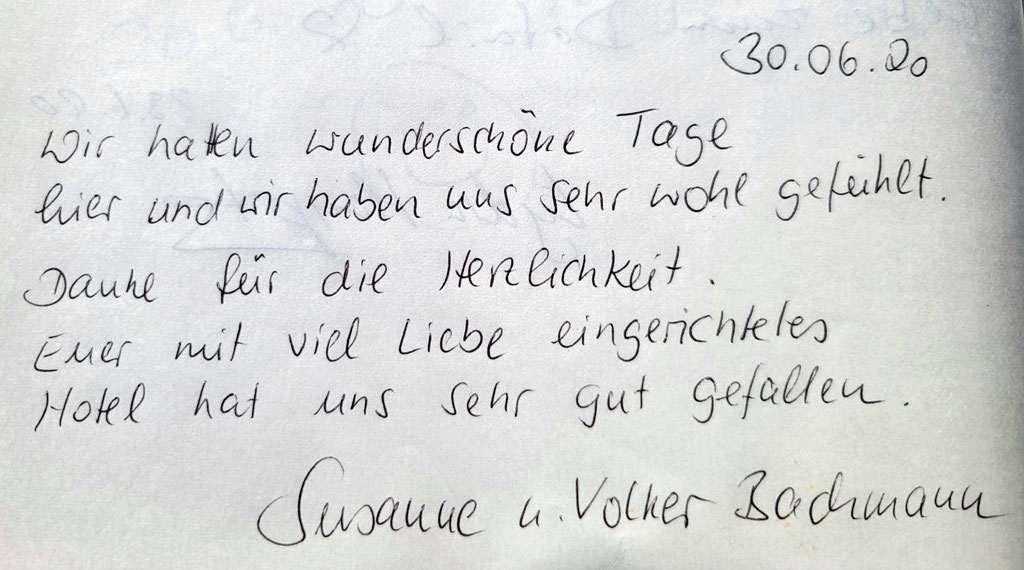 30.06.20
Wir hatten wunderschöne Tage
hier und wir haben uns sehr wohl gefühlt.
Danke für die Herzlichkeit.
Euer mit viel Liebe eingerichtetes
Hotel hat uns sehr gut gefallen.
Susanne u. Volker Bachmann